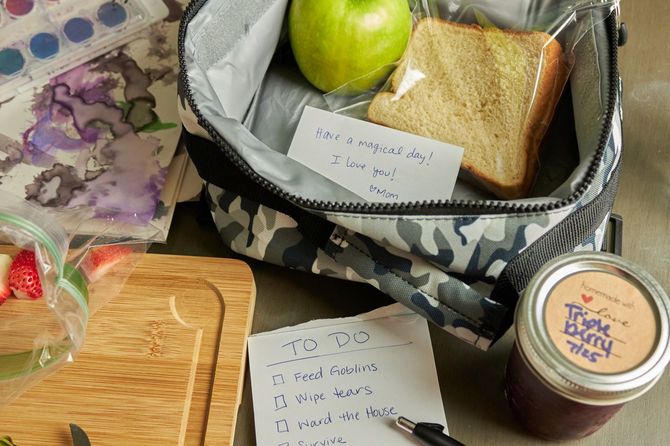 Have a magical day!
I love you!
♡Mom
homemade with
love
Triple
berry
7/25
TO DO
☐ Feed Goblins
☐ Wipe tears
☐ Ward the House
☐ Survive